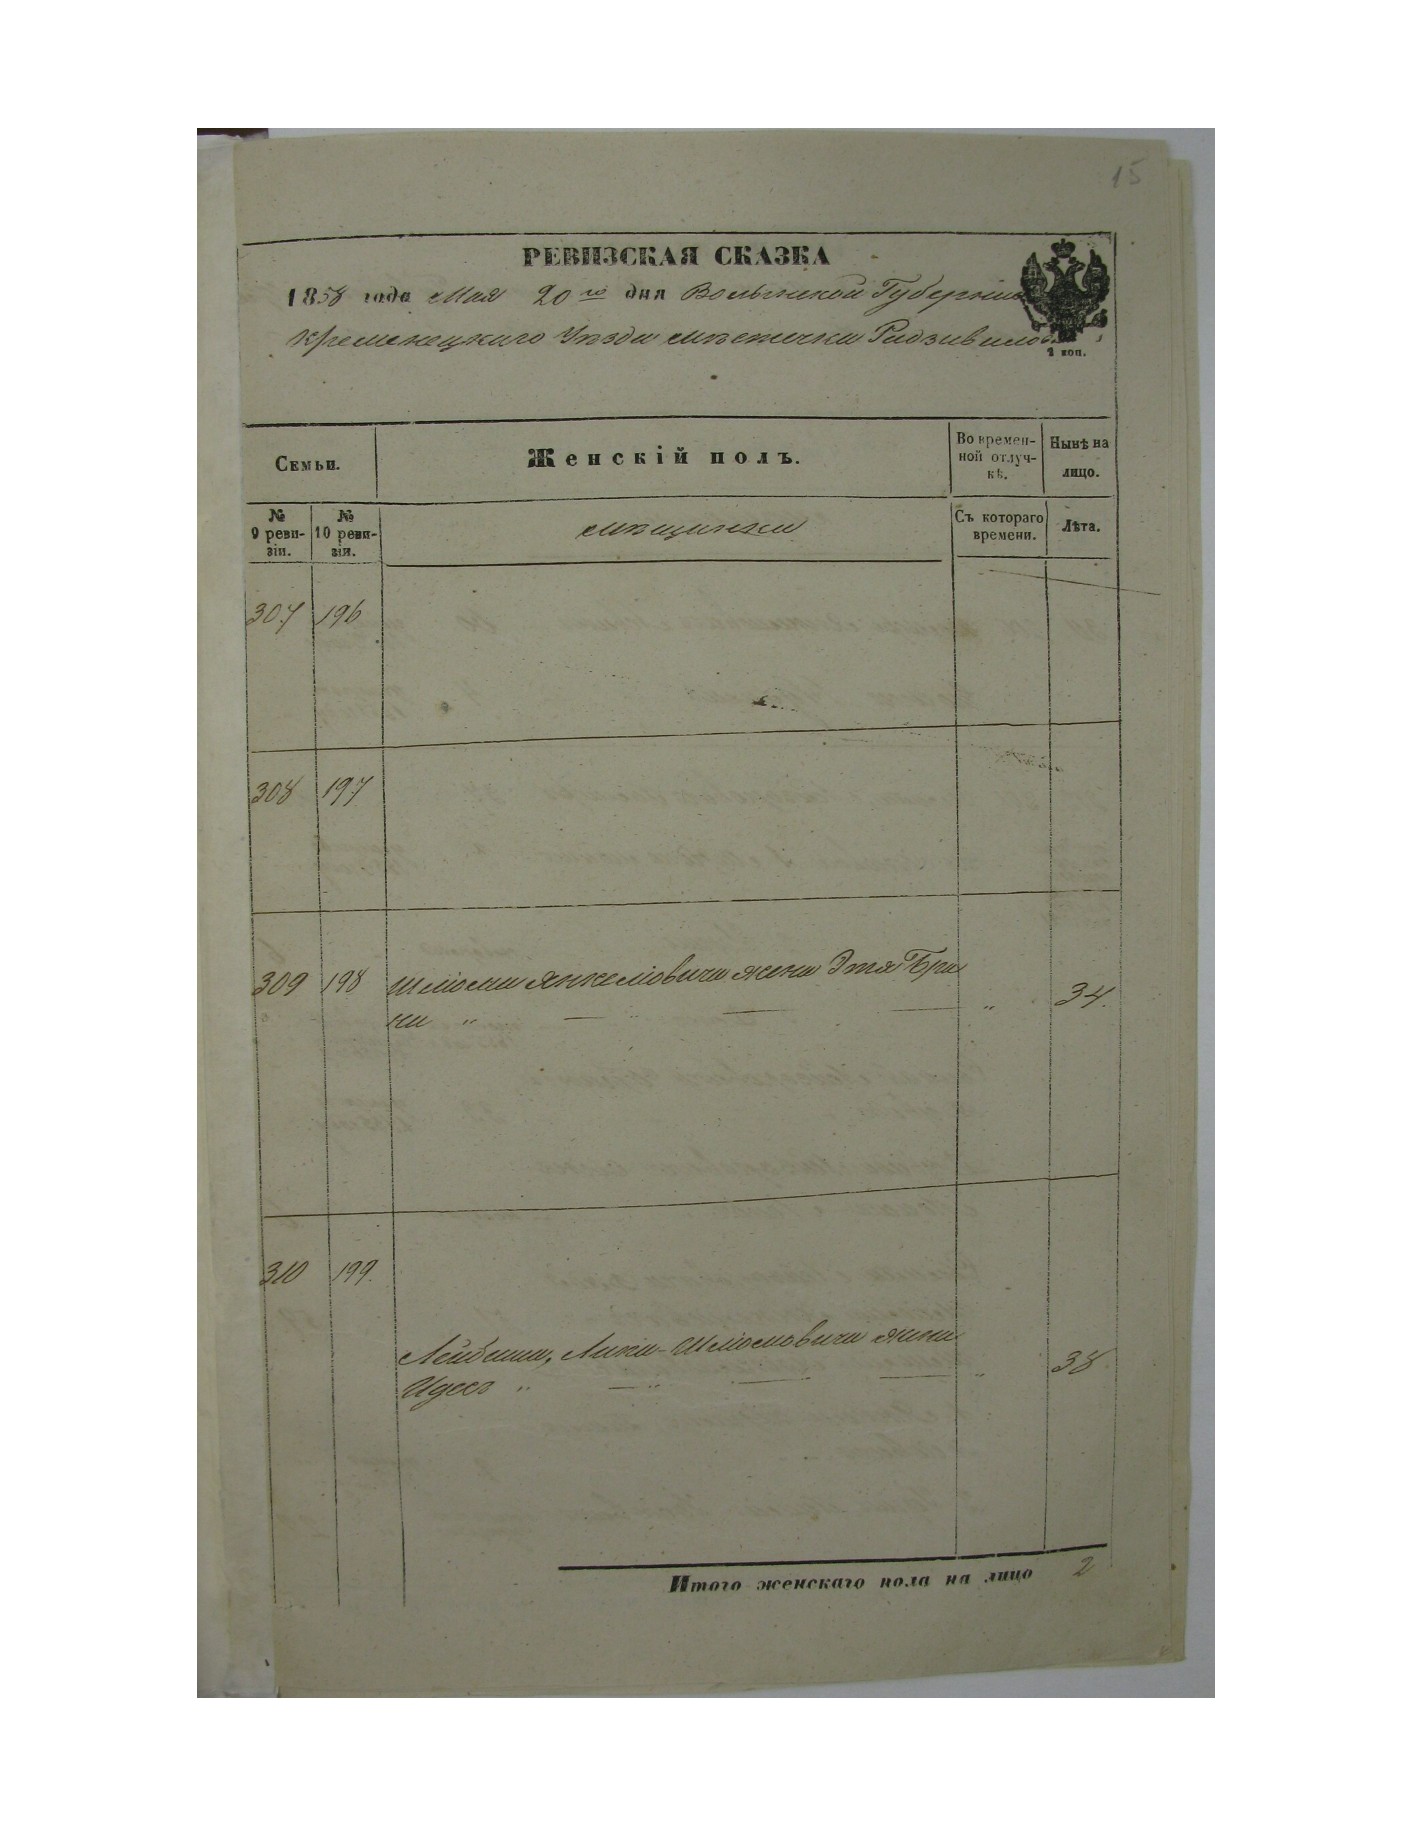 15
РЕВИЗСКАЯ СКАЗКА
1858 года Мая 20го дня Волынской Губерніи
Кременецкаго Уѣзда мѣстечка Радзивилова
1 коп.
Семьи.
Женскій полъ.
Во времен-
ной отлуч-
кѣ.
Нынѣ на
лицо.
№
9 реви-
зіи.
№
10 реви-
зіи.
мѣщанки
Съ котораго
времени.
Лѣта.
307 196
308 197
309 198 Шліомы Янкеліовича жена Этя Бра
на " — " — — " 34.
310 199.
Лейбиша, Шліомовича жена
Идесъ " — " — — " 38
Итого женскаго пола на лицо 2